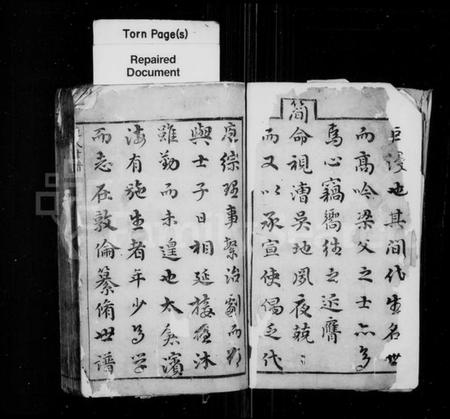 Torn Page(s)
Repaired
Document
巨後也其間代生名世
而高吟梁父之士亦多
焉心竊嚮往之近膺
簡
命視漕吳地夙夜兢〻
而又以承宣使偈乏代
庖綜理事繁治劇而
與士子日相延接
沐
雖勤而未遑也太矣濱
海有施生者年少為學
而志在敦倫纂脩世譜